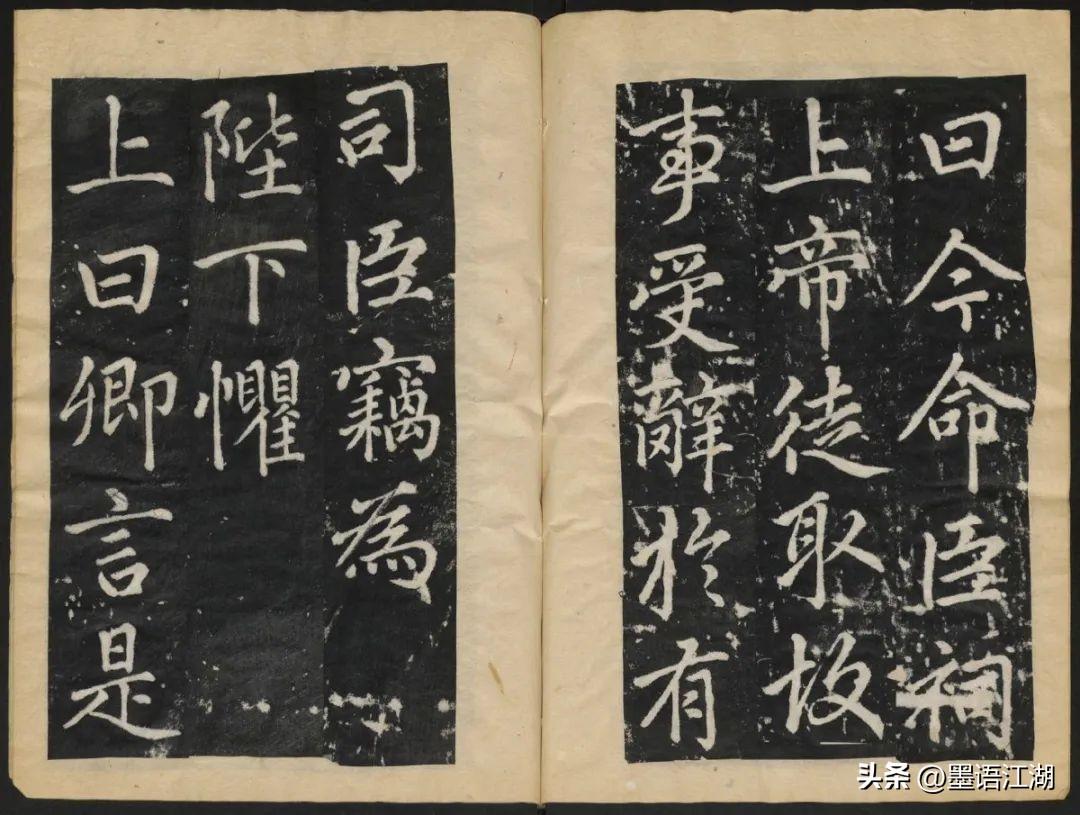 曰今命臣祠
上帝徒取故
事受辭於有
司臣竊為
陛下懼
上曰卿言是
头条 @墨语江湖